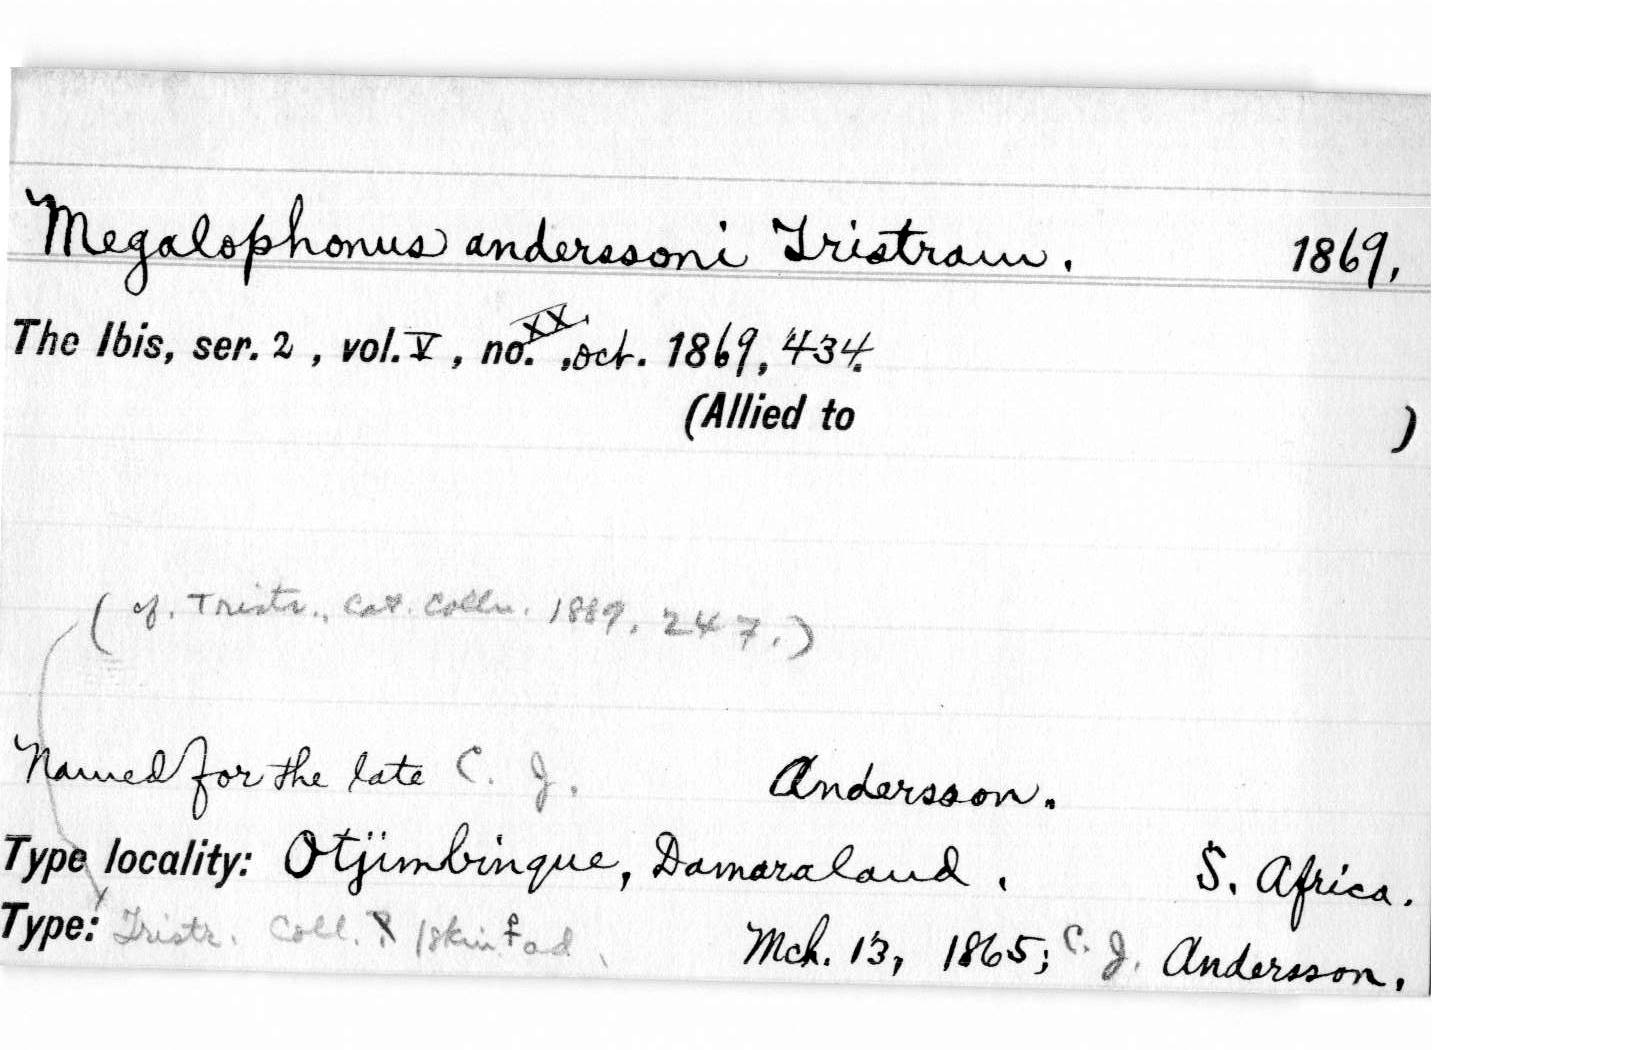 Megalophonus anderssoni Tristram. 1869.
The Ibis, ser. 2, vol. V, no. XX, oct. 1869, 434.
(Allied to )
(cf. Tristr., Cat. Colln. 1889, 247.)
Named for the late C. J. Andersson.
Type locality: Otjimbingue, Damaraland. S. Africa.
Type: Tristr. Coll. 1 skin ♀ ad. Mch. 13, 1865; C. J. Andersson.